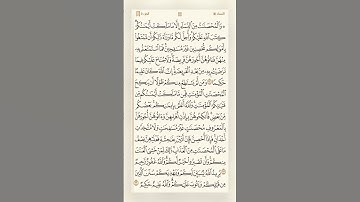 وَٱلْمُحْصَنَٰتُ مِنَ ٱلنِّسَآءِ إِلَّا مَا مَلَكَتْ أَيْمَٰنُكُمْ
كِتَٰبَ ٱللَّهِ عَلَيْكُمْ وَأُحِلَّ لَكُم مَّا وَرَآءَ ذَٰلِكُمْ أَن تَبْتَغُوا۟
بِأَمْوَٰلِكُم مُّحْصِنِينَ غَيْرَ مُسَٰفِحِينَ فَمَا ٱسْتَمْتَعْتُم بِهِۦ
مِنْهُنَّ فَـَٔاتُوهُنَّ أُجُورَهُنَّ فَرِيضَةً وَلَا جُنَاحَ عَلَيْكُمْ فِيمَا
تَرَٰضَيْتُم بِهِۦ مِنۢ بَعْدِ ٱلْفَرِيضَةِ إِنَّ ٱللَّهَ كَانَ عَلِيمًا
حَكِيمًا وَمَن لَّمْ يَسْتَطِعْ مِنكُمْ طَوْلًا أَن يَنكِحَ
ٱلْمُحْصَنَٰتِ ٱلْمُؤْمِنَٰتِ فَمِن مَّا مَلَكَتْ أَيْمَٰنُكُم مِّن
فَتَيَٰتِكُمُ ٱلْمُؤْمِنَٰتِ وَٱللَّهُ أَعْلَمُ بِإِيمَٰنِكُم بَعْضُكُم
مِّنۢ بَعْضٍ فَٱنكِحُوهُنَّ بِإِذْنِ أَهْلِهِنَّ وَءَاتُوهُنَّ أُجُورَهُنَّ
بِٱلْمَعْرُوفِ مُحْصَنَٰتٍ غَيْرَ مُسَٰفِحَٰتٍ وَلَا مُتَّخِذَٰتِ
أَخْدَانٍ فَإِذَآ أُحْصِنَّ فَإِنْ أَتَيْنَ بِفَٰحِشَةٍ فَعَلَيْهِنَّ نِصْفُ
مَا عَلَى ٱلْمُحْصَنَٰتِ مِنَ ٱلْعَذَابِ ذَٰلِكَ لِمَنْ خَشِىَ ٱلْعَنَتَ
مِنكُمْ وَأَن تَصْبِرُوا۟ خَيْرٌ لَّكُمْ وَٱللَّهُ غَفُورٌ رَّحِيمٌ
يُرِيدُ ٱللَّهُ لِيُبَيِّنَ لَكُمْ وَيَهْدِيَكُمْ سُنَنَ ٱلَّذِينَ
مِن قَبْلِكُمْ وَيَتُوبَ عَلَيْكُمْ وَٱللَّهُ عَلِيمٌ حَكِيمٌ